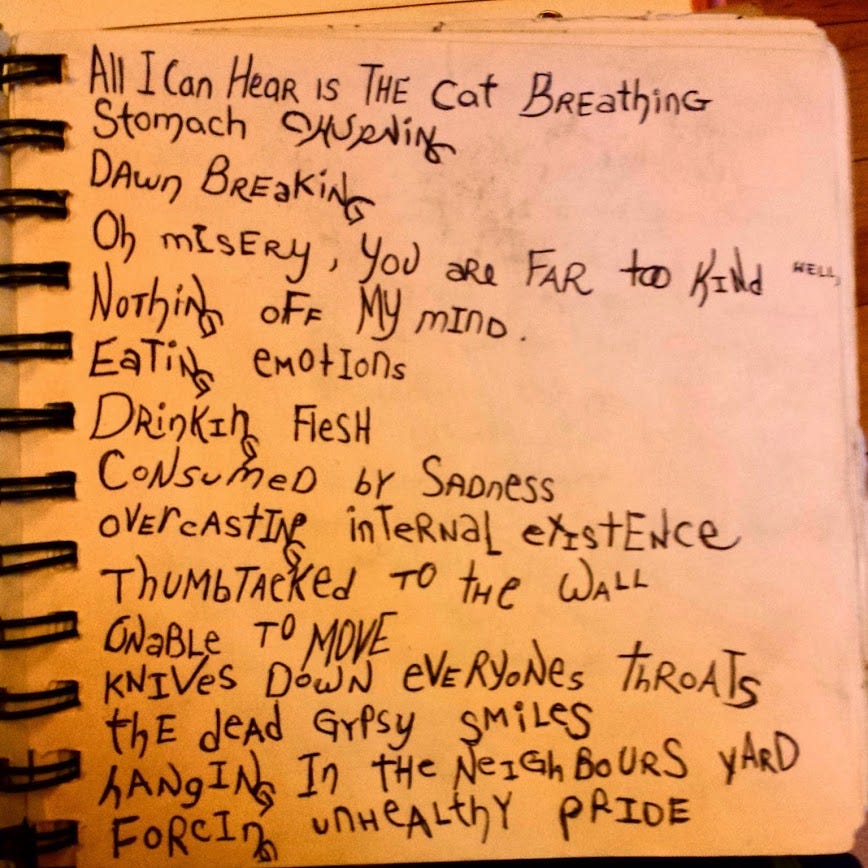 All I Can Hear is THE Cat BREathinG
Stomach CHURNiNg
DAwn BREaKiNg
Oh misERy, you are FAR too KiNd WELL,
NoThiNg oFF My miND.
EaTiNg emotIons
DRinKIng FlesH
CoNsumeD by SADness
oveRcAstINg inTeRNaL exIstENce
THuMbTAcKed TO tHe WALL
UNaBLe TO MOVE
KNIVes DoWN eVERyoNes tHROATs
thE deAd GyPsy SMiLeS
hANgINg In tHe NeIGhBOURS yARD
FoRcIng unHeALthy PRIDE